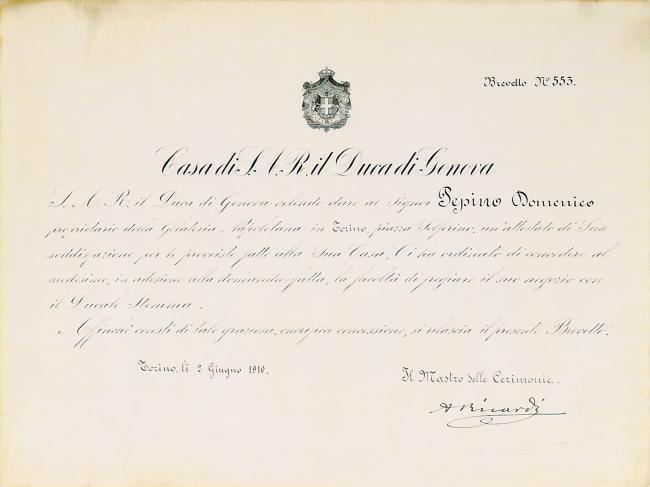 Brevetto Nº 553.
Casa di S. A. R. il Duca di Genova
S. A. R. il Duca di Genova volendo dare al Signor Pepino Domenico
proprietario della Gelateria Napoletana in Torino, piazza Solferino, un'attestato di Sua
soddisfazione per le provviste fatte alla Sua Casa, Ci ha ordinato di concedere al
medesimo, in adesione alla domanda fatta, la facoltà di fregiare il suo negozio con
il Ducale Stemma.
Affinchè consti di tale graziosa, onorifica concessione, si rilascia il presente Brevetto.
Torino, li 2 Giugno 1910.
Il Mastro delle Cerimonie.
A Ricardi